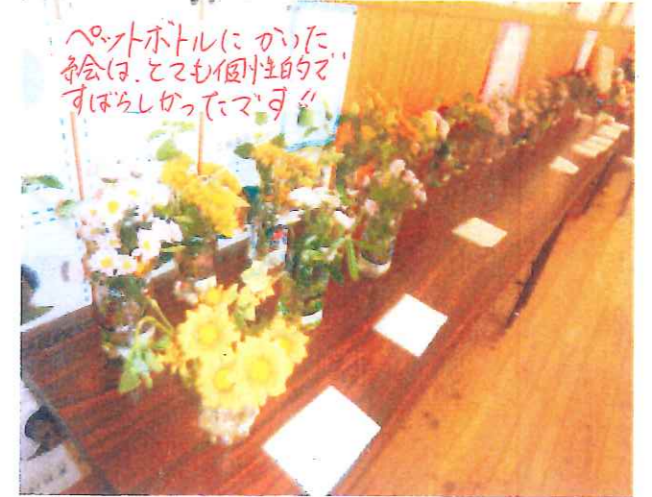 ペットボトルに かいた
絵は、とても個性的で
すばらしかったです!!